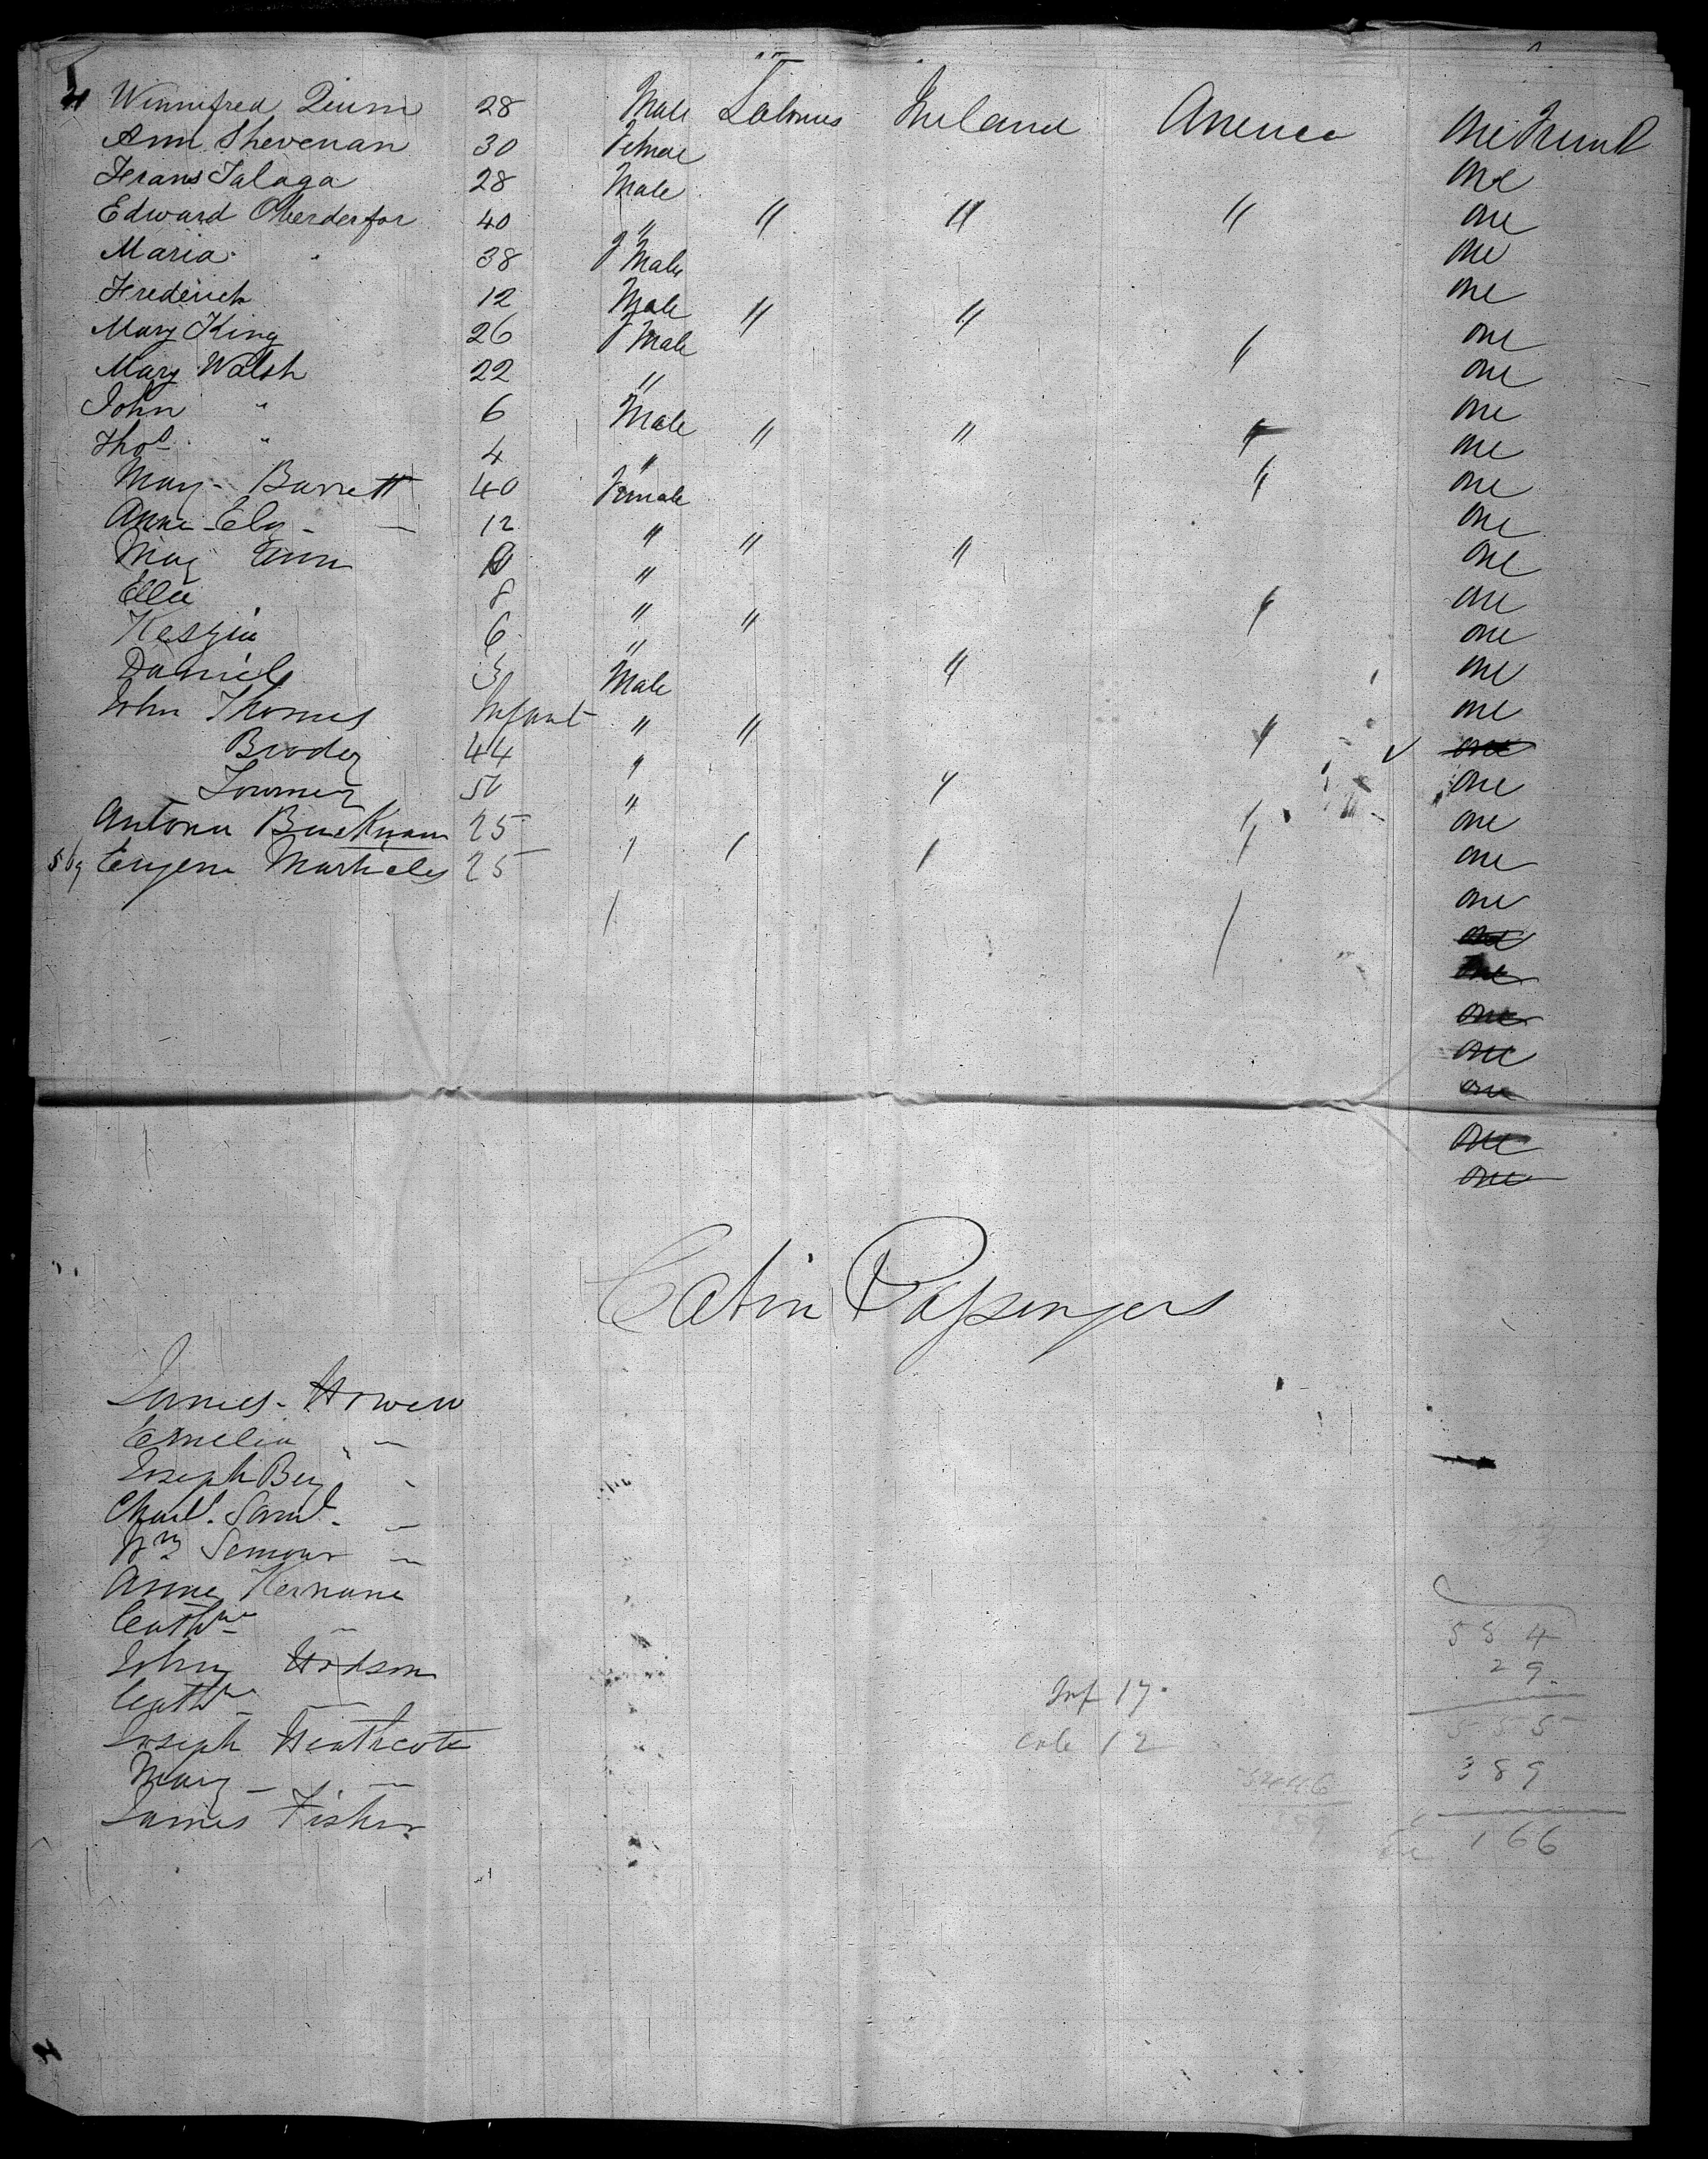 Winnifred Quinn 28 Male Labourers Ireland America One Trunk
Ann Shevenan 30 Female One
Frans Talaga 28 Male One
Edward Oberderfor 40 " " " " One
Maria " 38 FMale One
Frederick 12 Male " " One
Mary King 26 FMale " One
Mary Walsh 22 " One
John " 6 Male " " " One
Thos " 4 " " One
Mary Barrett 40 Female One
Anne Ely - — 12 " " " One
May Ann 10 " One
Ellee 8 " " " One
Kesziu 6 " " One
Daniel 3 Male One
John Thomas Infant " " " One
Broder 44 " " One
50 " One
Antonu Buckman 25 " " " " One
569 Eugene 25 One
One
One
One
One
One
One
One
Cabin Passengers
James - Howell
Emelia " —
Joseph Ben "
Charls. Saml. —
Wm Semour —
Anne Kernane
Cathne —
John Hodson
Cathne —
Joseph Heathcote
Mary — —
James Fisher
Inf 17
Cab 12
584
29
555
389
166